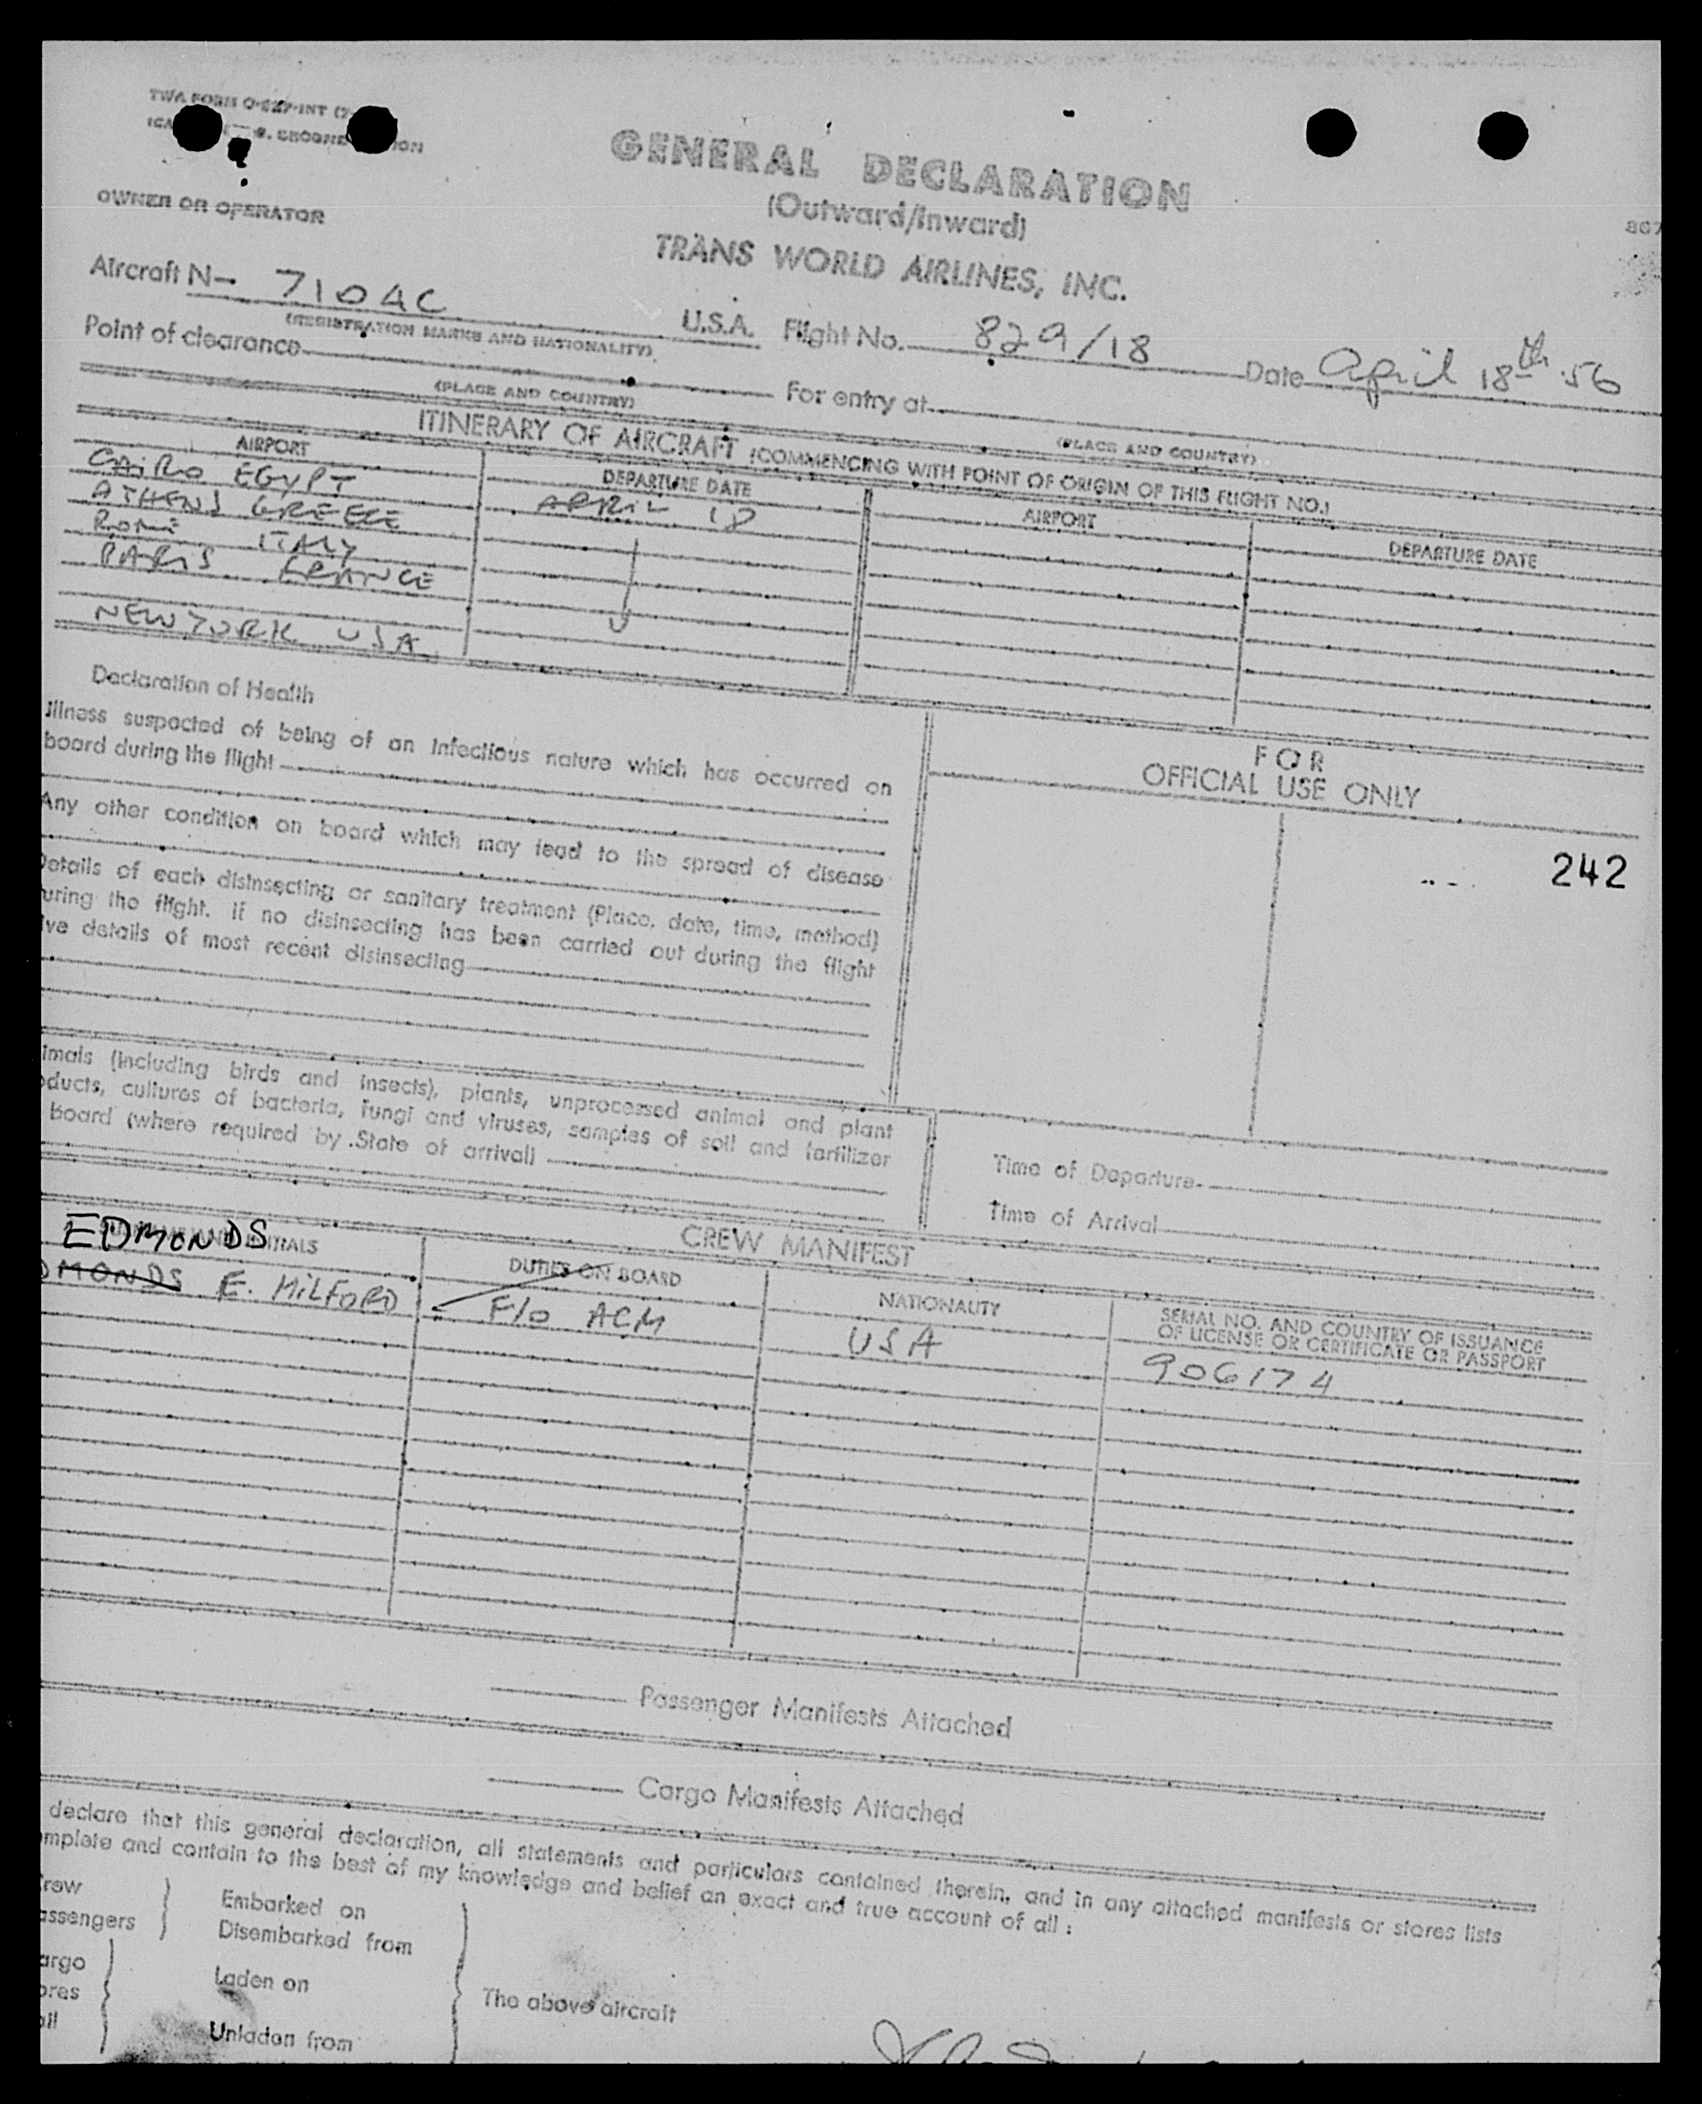 TWA FORM O-
OWNER OR OPERATOR
GENERAL DECLARATION
(Outward/Inward)
TRANS WORLD AIRLINES, INC.
Aircraft N- 7104C U.S.A. Flight No. 829/18 Date April 18th 56
(REGISTRATION MARKS AND NATIONALITY)
Point of clearance For entry at
(PLACE AND COUNTRY) (PLACE AND COUNTRY)
ITINERARY OF AIRCRAFT (COMMENCING WITH POINT OF ORIGIN OF THIS FLIGHT NO.)
AIRPORT DEPARTURE DATE AIRPORT DEPARTURE DATE
CAIRO EGYPT APRIL 18
ATHENS GREECE
ROME ITALY
PARIS FRANCE
NEW YORK USA
Declaration of Health
Illness suspected of being of an infectious nature which has occurred on
board during the flight
Any other condition on board which may lead to the spread of disease
Details of each disinsecting or sanitary treatment (Place, date, time, method)
uring the flight. If no disinsecting has been carried out during the flight
ive details of most recent disinsecting
FOR
OFFICIAL USE ONLY
242
imals (including birds and insects), plants, unprocessed animal and plant
oducts, cultures of bacteria, fungi and viruses, samples of soil and fertilizer
board (where required by State of arrival)
Time of Departure
Time of Arrival
CREW MANIFEST
EDMONDS
INITIALS DUTIES ON BOARD NATIONALITY SERIAL NO. AND COUNTRY OF ISSUANCE
OF LICENSE OR CERTIFICATE OR PASSPORT
DMONDS E. MILFORD F/O ACM USA 906174
Passenger Manifests Attached
Cargo Manifests Attached
declare that this general declaration, all statements and particulars contained therein, and in any attached manifests or stores lists
omplete and contain to the best of my knowledge and belief an exact and true account of all :
rew
assengers
Embarked on
Disembarked from
argo
ores
ail
Laden on
Unladen from
The above aircraft